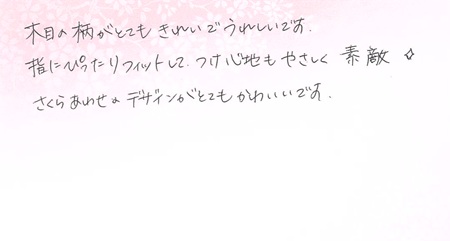 木目の柄がとてもきれいでうれしいです.
指にぴったりフィットして、つけ心地もやさしく 素敵 ☆
さくらあわせのデザインがとてもかわいいです.